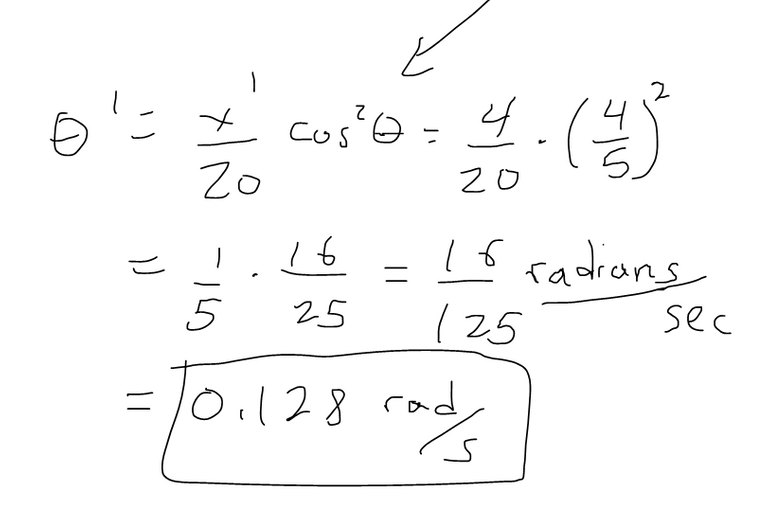 θ' = x'/20 cos²θ = 4/20 · (4/5)²
= 1/5 · 16/25 = 16/125 radians/sec
= 0.128 rad/s